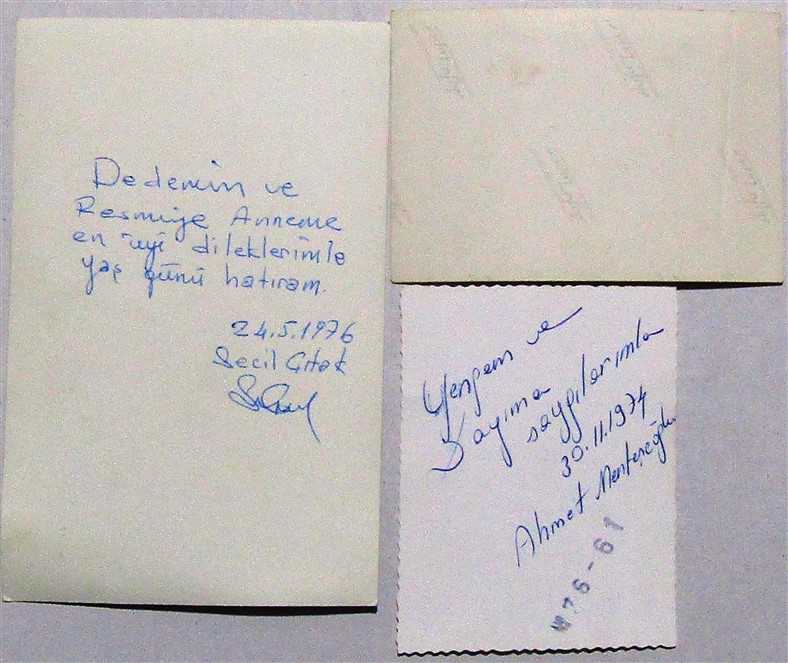 Dedemin ve
Resmiye Anneme
en iyi dileklerimle
yaş günü hatıram.
24.5.1976
Seçil Çıtak
Yengem ve
Dayıma
saygılarımla
30.11.1974
Ahmet Menteşeoğlu
W76-61